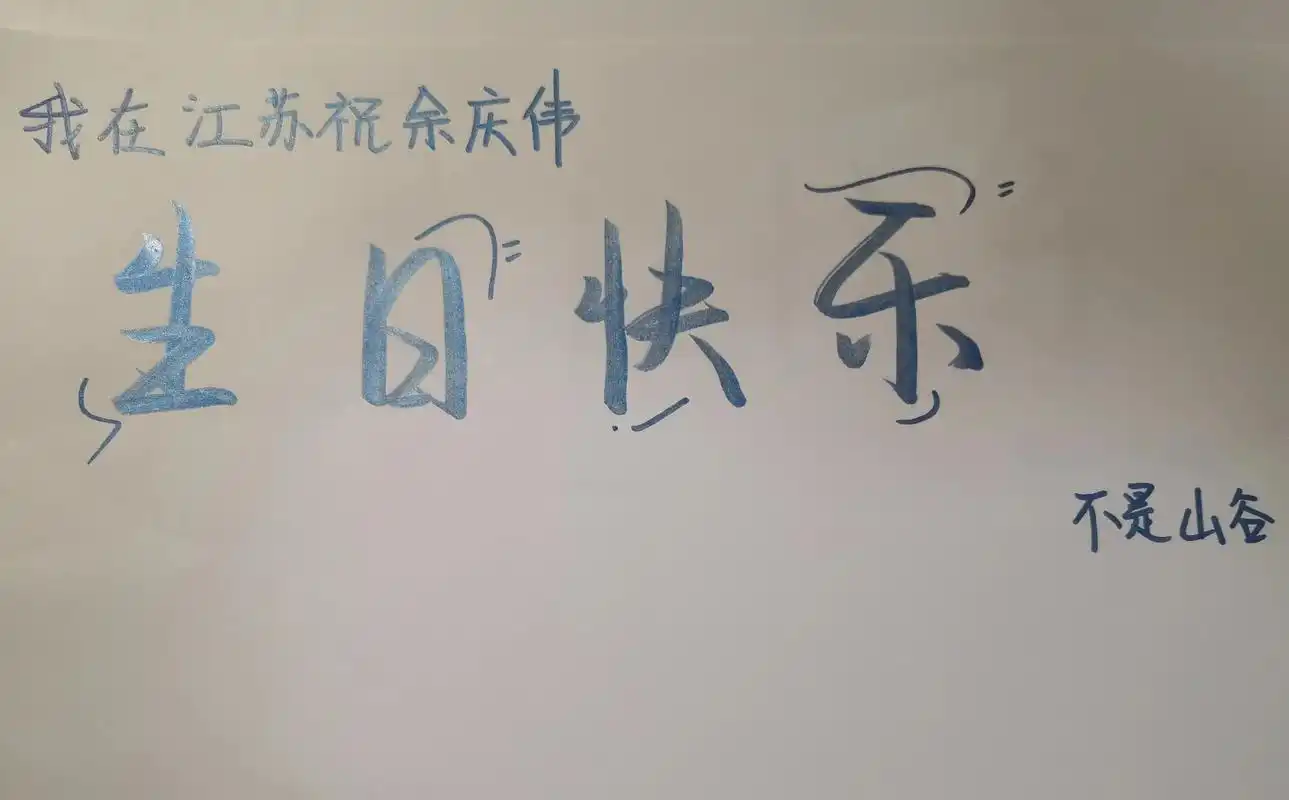 我在江苏祝余庆伟
生日快乐
不是山谷